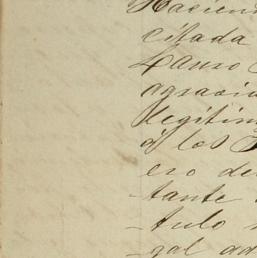 Hacien
citada
Lauro
agracia
legitim
á los
ero de
tante
-tulo
-gal ad